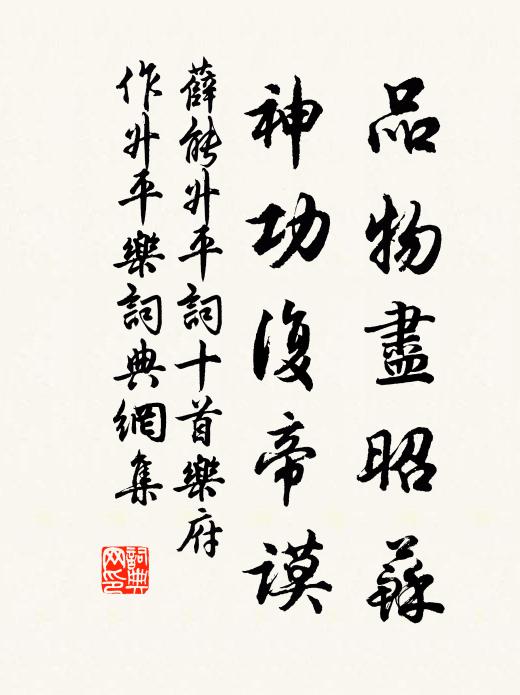 品物盡昭蘇
神功復帝謨
薛能升平詞十首樂府
作升平樂詞典網集
詞典網印